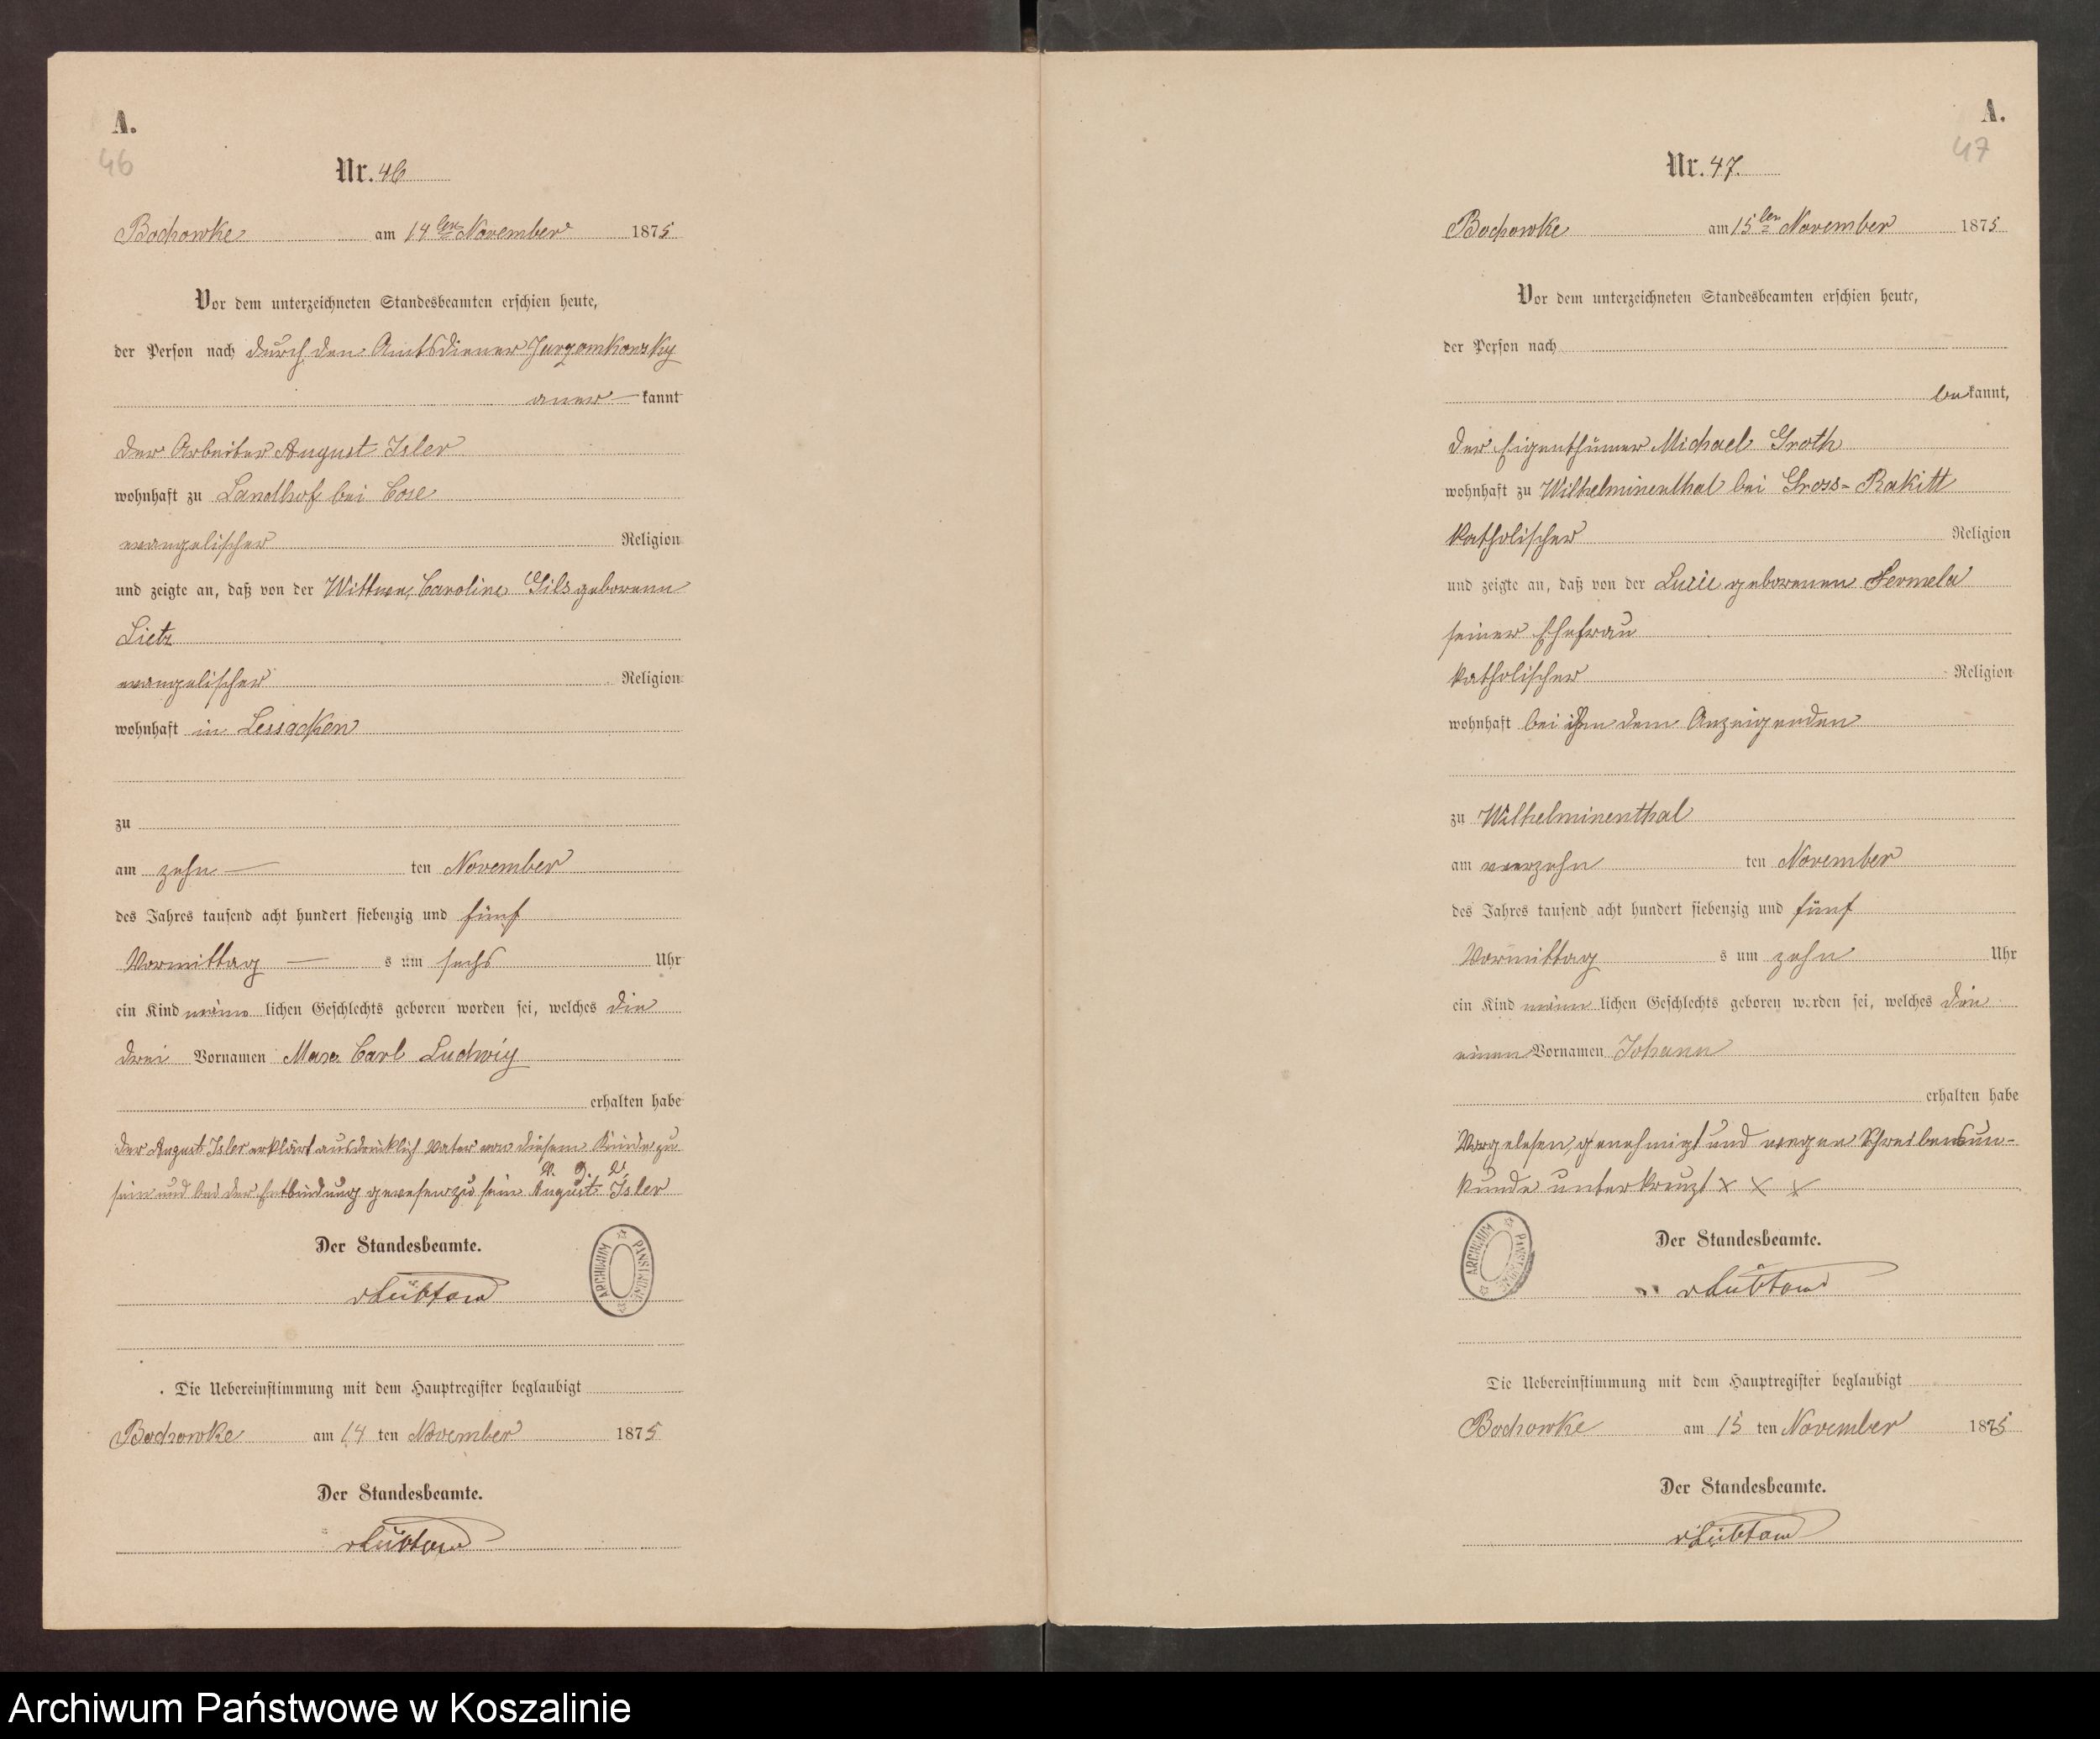 A.
46
Nr. 46
Bochowke am 14ten November 1875
Vor dem unterzeichneten Standesbeamten erschien heute,
der Person nach durch den Amtsdiener
aner kannt
der Arbeiter August Isler
wohnhaft zu Landhof bei Cose
evangelischer Religion
und zeigte an, daß von der Wittwe Caroline Gils geborenen
Lietz
evangelischer Religion
wohnhaft in Lessacken
zu
am zehn ten November
des Jahres tausend acht hundert siebenzig und fünf
Vormittag s um sechs Uhr
ein Kind männ lichen Geschlechts geboren worden sei, welches die
drei Vornamen Max Carl Ludwig
erhalten habe
der August Isler erklärt ausdrücklich Vater von diesem Kinde zu
sein und bei der Entbindung gewesen zu sein v. g. u. August Isler
Der Standesbeamte.
vLübtow
ARCHIWUM PAŃSTWOWE
Die Uebereinstimmung mit dem Hauptregister beglaubigt
Bochowke am 14 ten November 1875
Der Standesbeamte.
vLübtow
A.
47
Nr. 47.
Bochowke am 15ten November 1875
Vor dem unterzeichneten Standesbeamten erschien heute,
der Person nach
be kannt,
der Eigenthümer Michael Groth
wohnhaft zu Wilhelminenthal bei Gross-Rakitt
katholischer Religion
und zeigte an, daß von der Luzie geborenen
seiner Ehefrau
katholischer Religion
wohnhaft bei ihm dem Anzeigenden
zu Wilhelminenthal
am vierzehn ten November
des Jahres tausend acht hundert siebenzig und fünf
Vormittag s um zehn Uhr
ein Kind männ lichen Geschlechts geboren worden sei, welches den
einen Vornamen Johann
erhalten habe
Vorgelesen, genehmigt und wegen Schreibensun-
kunde unterkreuzt x x x
Der Standesbeamte.
vLübtow
ARCHIWUM PAŃSTWOWE
Die Uebereinstimmung mit dem Hauptregister beglaubigt
Bochowke am 15 ten November 1875
Der Standesbeamte.
vLübtow
Archiwum Państwowe w Koszalinie